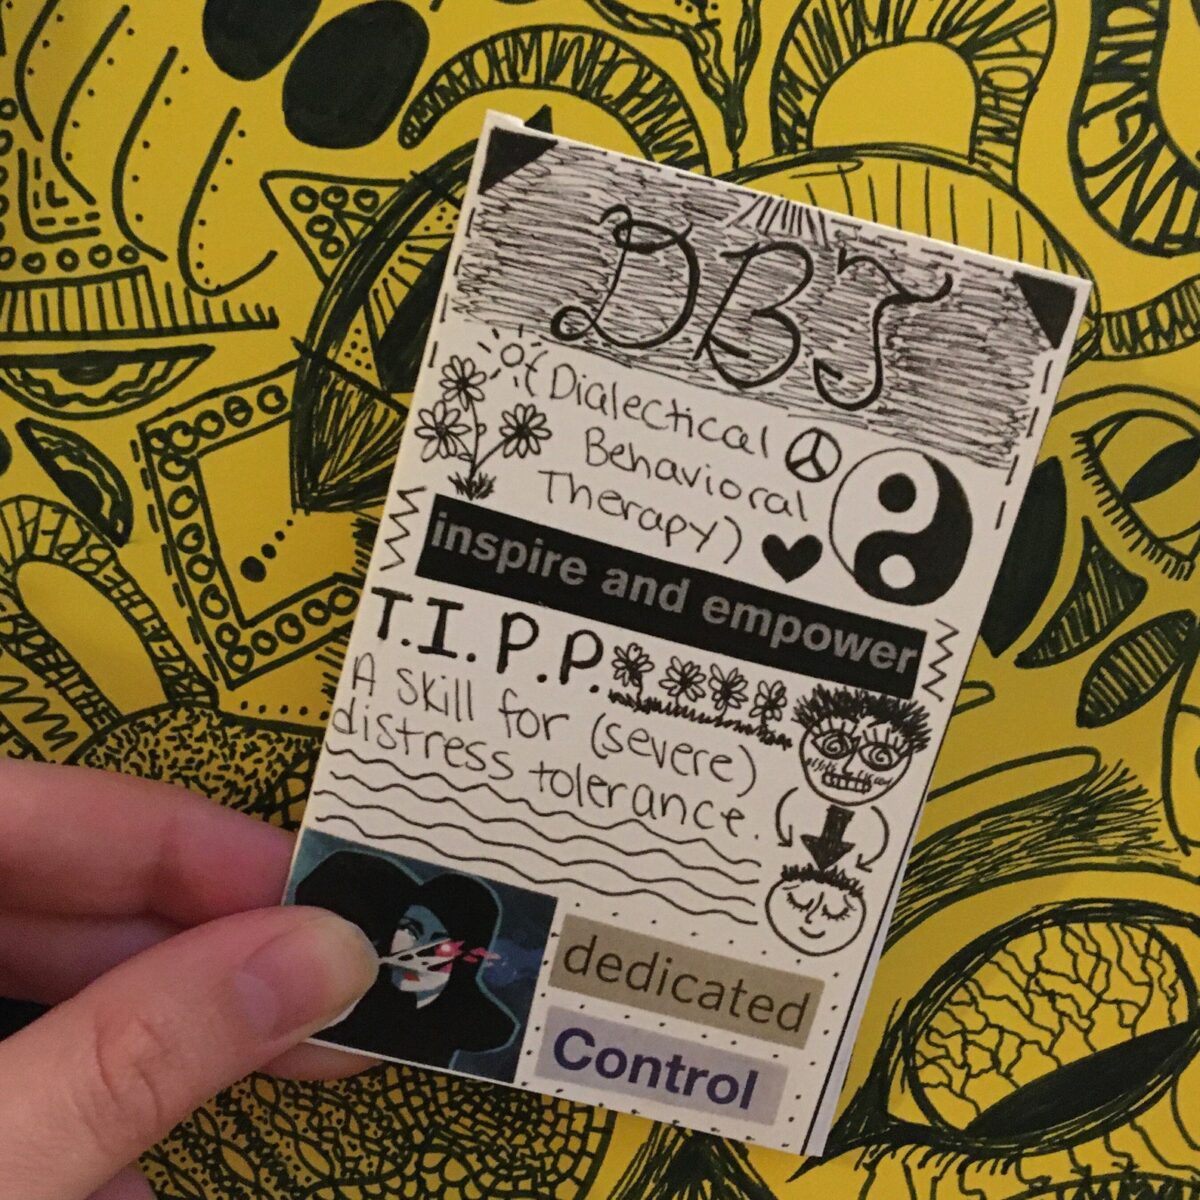 DBT
(Dialectical
Behavioral
Therapy)
inspire and empower
T.I.P.P.
A skill for (severe)
distress tolerance.
dedicated
Control